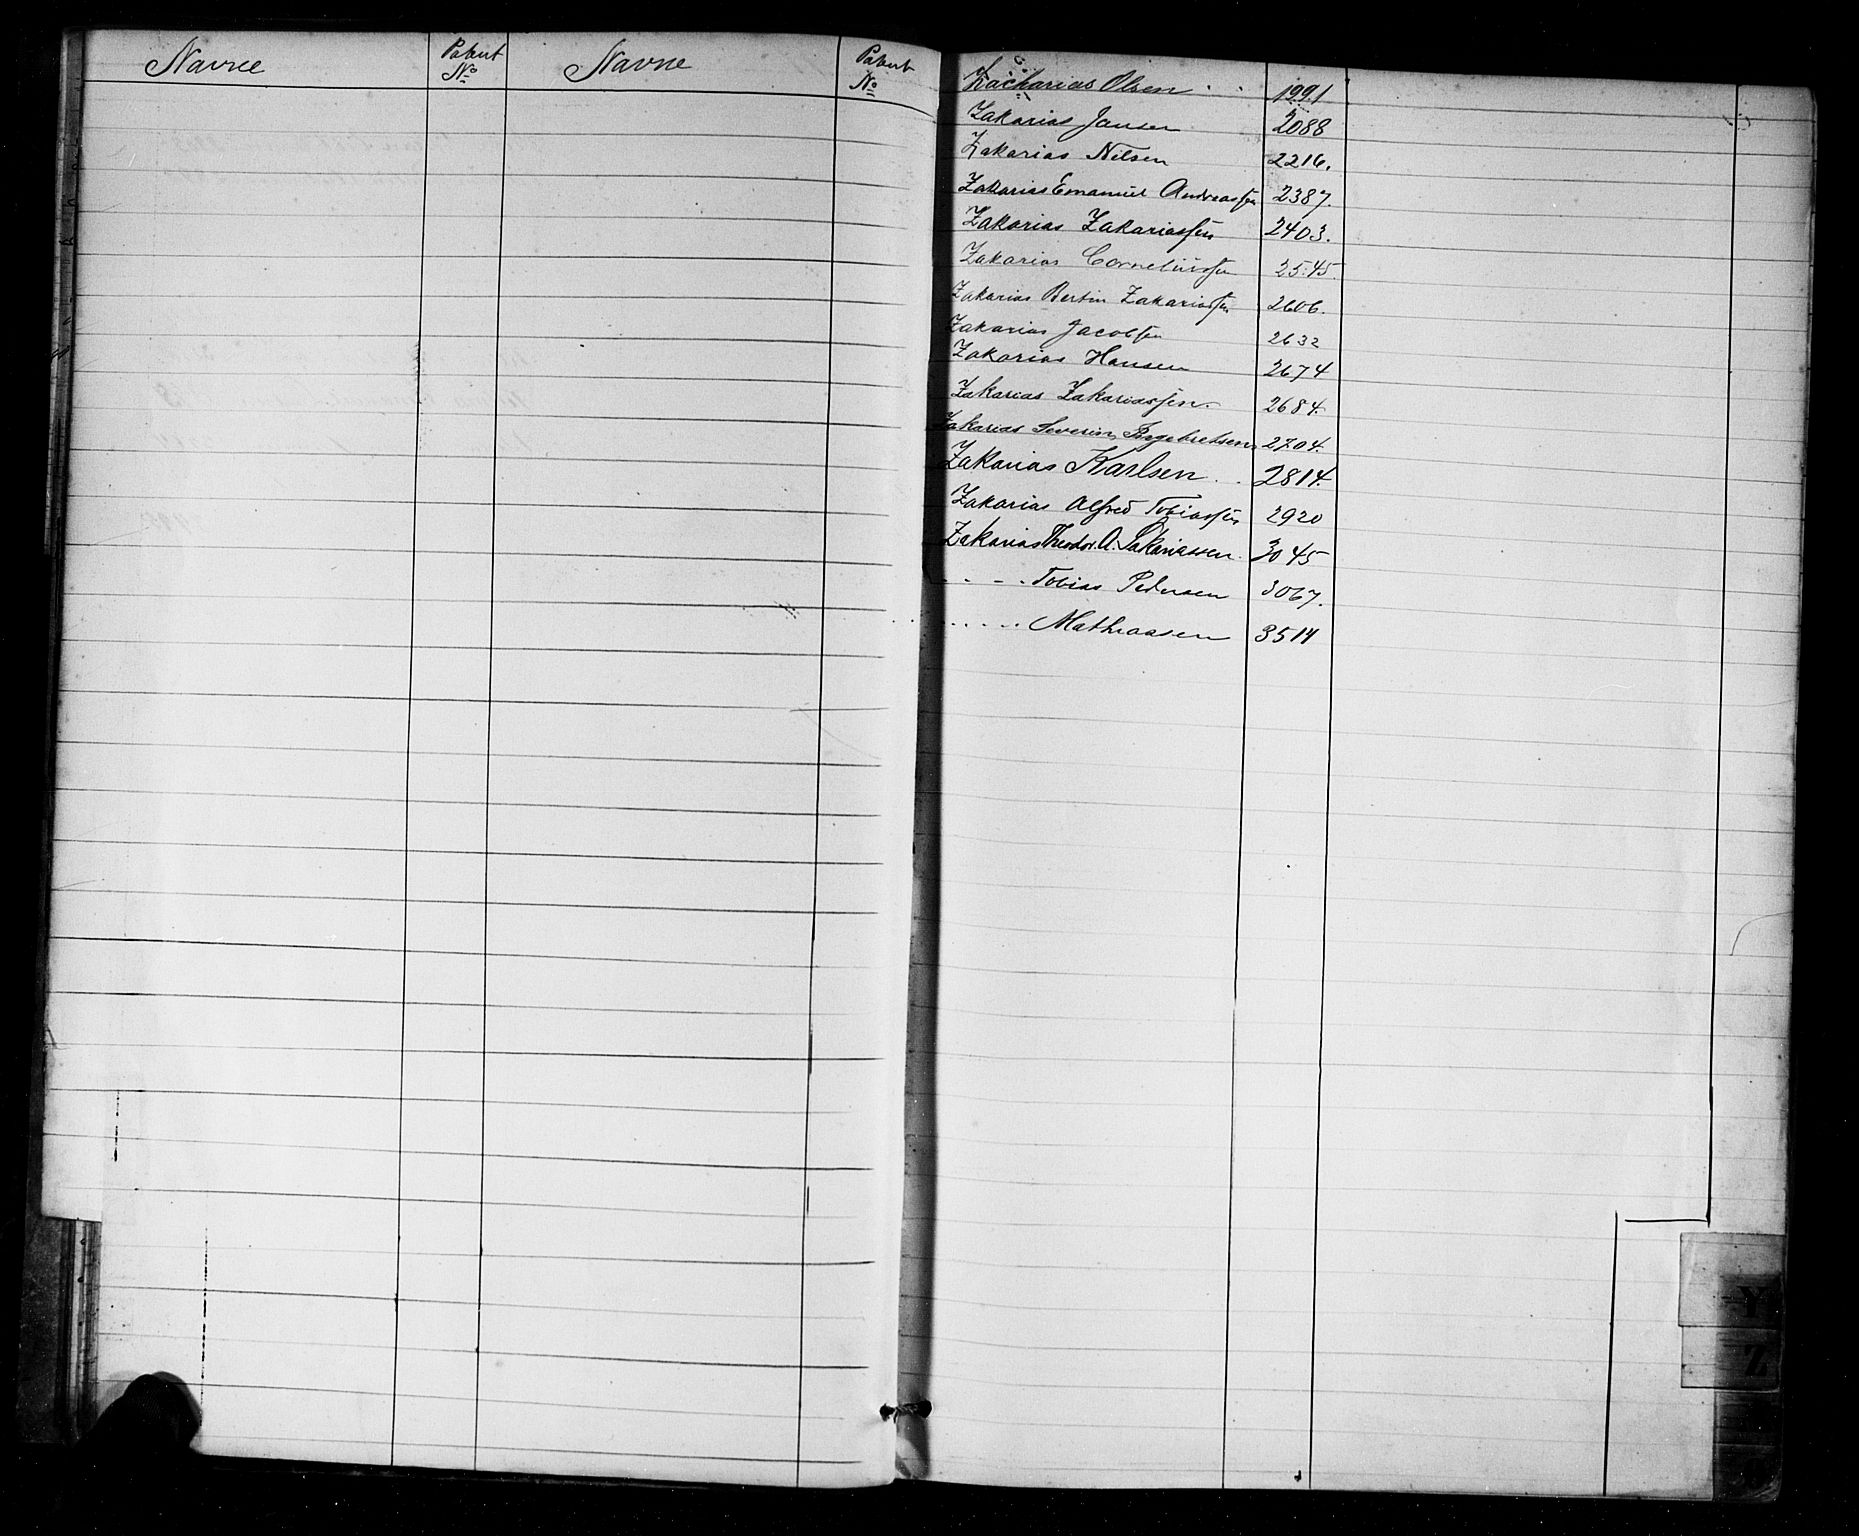 Navne Patent No Navne Patent No
Zacharias Olsen . . 1991
Zakarias Jansen 2088
Zakarias Nilsen 2216.
Zakarias Emanuel Andreassen 2387.
Zakarias Zakariassen 2403.
Zakarias Corneliussen 2545.
Zakarias Bertin Zakariassen 2606.
Zakarias Jacobsen 2632
Zakarias Hansen 2674
Zakarias Zakariassen. 2684.
Zakarias Severin Ingebretsen 2704.
Zakarias Karlsen . . 2814.
Zakarias Alfred Tobiassen 2920
Zakarias Theodor. A. Sakariassen. 3045
. . - . Tobias Pedersen 3067.
. . . . . Mathiassen 3514
Y
Z